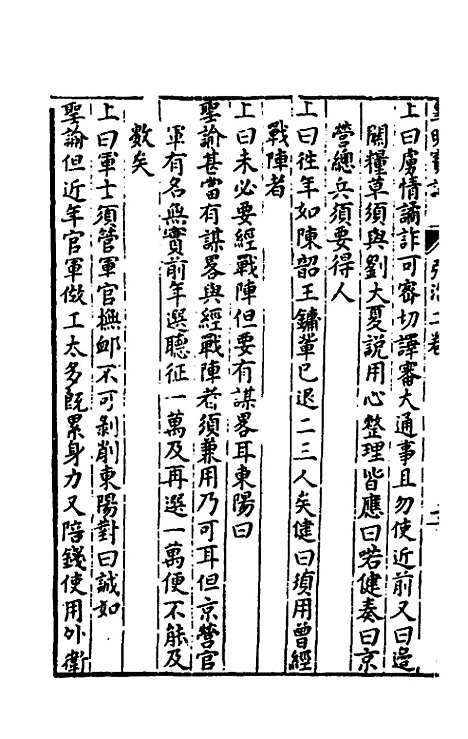 上曰虜情譎詐可審切譯審大通事且勿使近前又曰邊
關糧草須與劉大夏說用心整理皆應曰喏健奏曰京
營總兵須要得人
上曰往年如陳韶王鏞輩已退二三人矣健曰須用曾經
戰陣者
上曰未必要經戰陣但要有謀畧耳東陽曰
聖諭甚當有謀畧與經戰陣者須兼用乃可耳但京營官
軍有名無實前年選聽征一萬及再選一萬便不能及
數矣
上曰軍士須管軍官撫卹不可剥削東陽對曰誠如
聖諭但近年官軍做工太多旣累身力又陪錢使用外衛